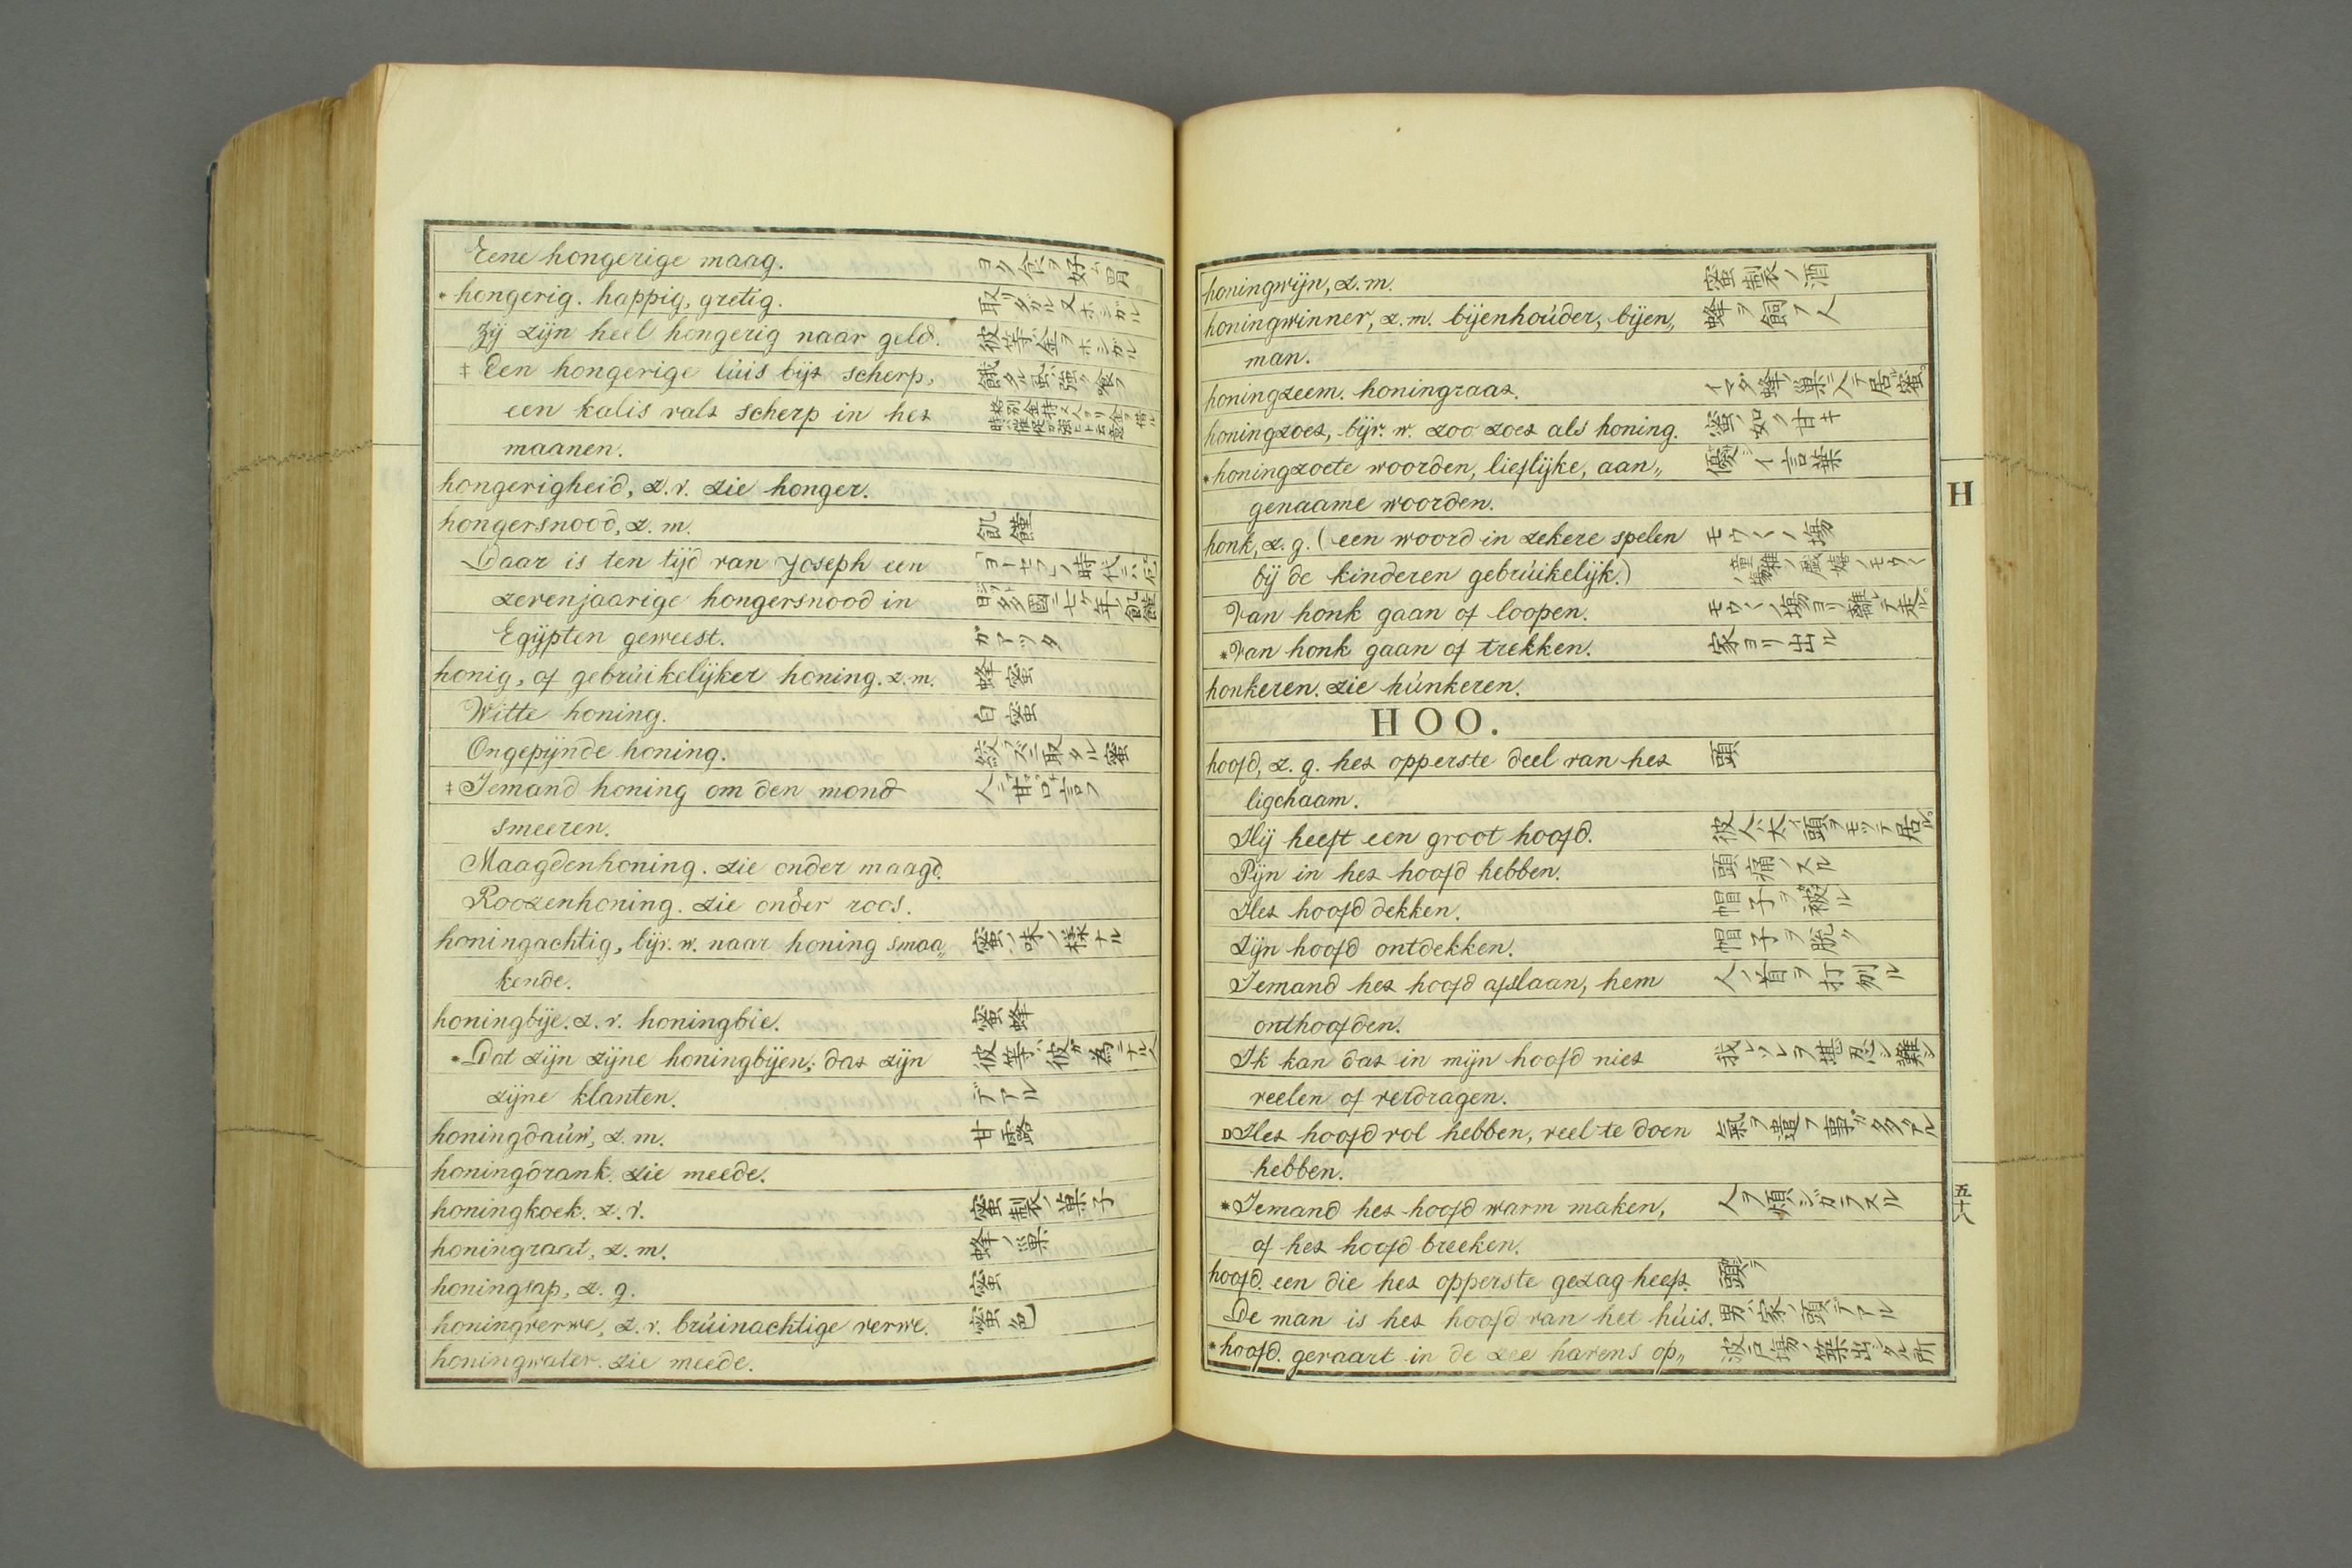 Eene hongerige maag. ヨク食ヲ好ム胃
* hongerig. happig, gretig. 取リタガル又ホシガル
Zij zijn heel hongerig naar geld. 彼等ハ金ヲホシガル
‡ Een hongerige lúis bijt scherp,
een kalis valt scherp in het
maanen.
hongerigheid, z.v. zie honger.
hongersnood, z. m. 飢饉
Daar is ten tijd van Joseph een
zevenjaarige hongersnood in
Egijpten geweest. ガアツタ
honig, of gebrúikelijker honing. z.m. 蜂蜜
Witte honing. 白蜜
Ongepijnde honing. 絞ラズニ取タル蜜
‡ Iemand honing om den mond 人ニ甘口ヲ言フ
smeeren.
Maagdenhoning. zie onder maagd.
Roozenhoning. zie onder roos.
honingachtig, bijv. w. naar honing smaa„ 蜜ノ味ノ様ナル
kende.
honingbije. z. v. honingbie. 蜜蜂
* Dat zijn zijne honingbijen; dat zijn 彼等ハ彼ガ為ニナル人
zijne klanten. デアル
honingdaúw, z. m. 甘露
honingdrank. zie meede.
honingkoek. z. v. 蜜製ノ菓子
honingraat, z. m. 蜂ノ巣
honingsap, z. g. 蜜
honingverwe, z. v. brúinachtige verwe. 蜜色
honingwater. zie meede.
honingwijn, z. m. 蜜製ノ酒
honingwinner, z. m. bijenhoúder, bijen„ 蜂ヲ飼フ人
man.
honingzeem. honingraat. イマダ蜂ノ巣ニ入テ居ル蜜
honingzoet, bijv. w. zoo zoet als honing. 蜜ノ如ク甘キ
* honingzoete woorden, lieflijke, aan„ 優シイ言葉
genaame woorden.
honk, z. g. (een woord in zekere spelen
bij de kinderen gebrúikelijk.)
Van honk gaan of loopen.
* Van honk gaan of trekken. 家ヨリ出ル
honkeren. zie húnkeren.
HOO.
hoofd, z. g. het opperste deel van het 頭
ligchaam.
Hij heeft een groot hoofd. 彼人ハ大イ頭ヲモツテ居ル
Pijn in het hoofd hebben. 頭痛ノスル
Het hoofd dekken. 帽子ヲ被ル
Zijn hoofd ontdekken. 帽子ヲ脱ク
Iemand het hoofd afslaan, hem 人ノ首ヲ打刎ル
onthoofden.
Ik kan dat in mijn hoofd niet 我レソレヲ堪忍シ難シ
veelen of verdragen.
D Het hoofd vol hebben, veel te doen 氣ヲ遣フ事ガ多クアル
hebben.
* Iemand het hoofd warm maken, 人ヲ煩シガラスル
of het hoofd breeken.
hoofd. een die het opperste gezag heeft. 頭ラ
De man is het hoofd van het húis. 男ハ家ノ頭デアル
* hoofd. gevaart in de zee havens op„ 波戸場ノ築出シタル所
H
五十八